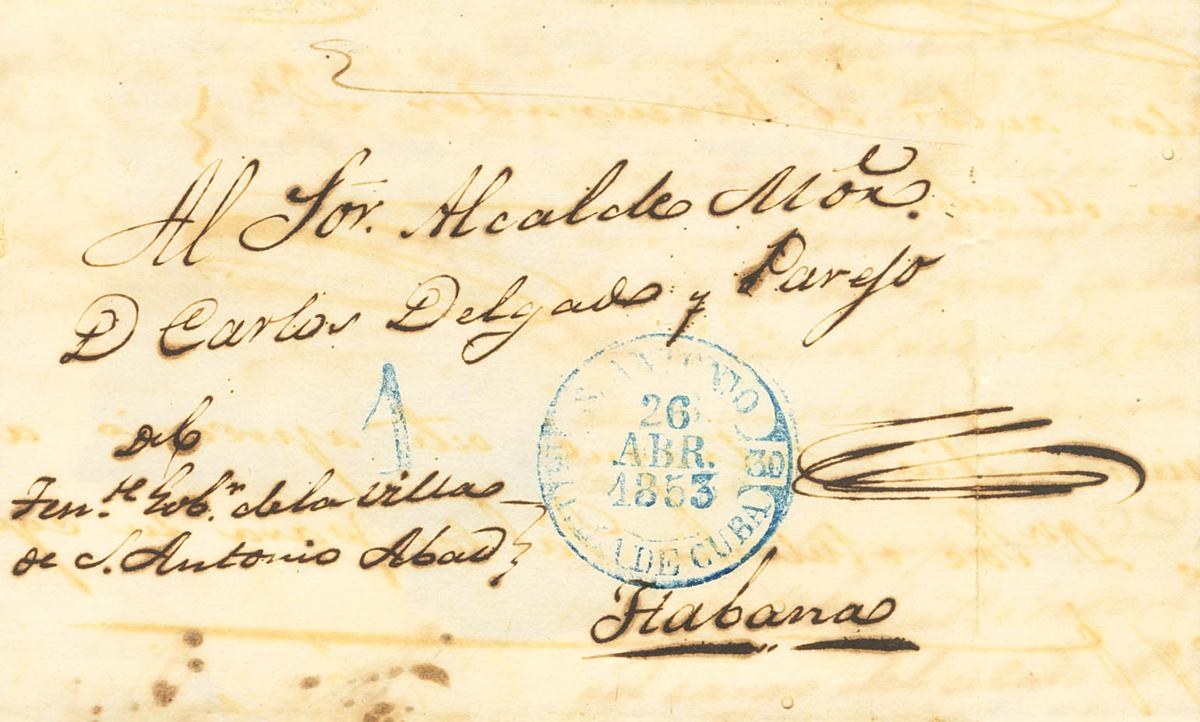 Al Sor. Alcalde Mor.
D Carlos Delgado y Parejo
1
del
Tente. Gobr. de la villa
de S. Antonio Abad
S. ANTONIO
26
ABR.
1853
DE CUBA
Habana